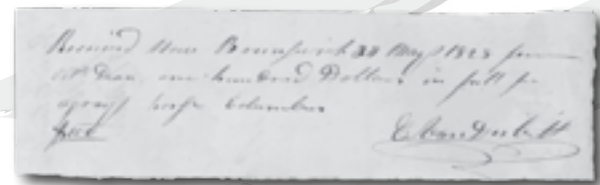 Received New Brunswick 24 May 1823 from
one hundred Dollars in full for
Columbus
$100 C Vanderbilt